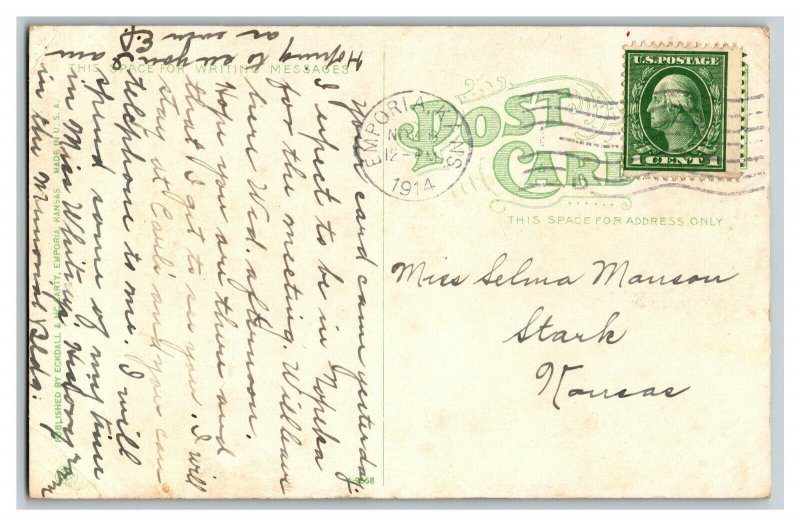 THIS SPACE FOR WRITING MESSAGES
POST
CARD
THIS SPACE FOR ADDRESS ONLY
U.S. POSTAGE
1 CENT 1
EMPORIA, KANS
12 - PM
1914
Miss Selma Manson
Stark
Kansas
Your card came yesterday.
I expect to be in Topeka
for the meeting. Will leave
here Wed. afternoon.
Hope you are there and
that I get to see you. I will
stay at Carl's and you can
telephone to me. I will
spend some of my time
in Miss Whitney's History rm
in the Memorial Bldg.
Hoping to see you
as ever E.S.
PUBLISHED BY ECKDALL & MC CARTY, EMPORIA, KANSAS. MADE IN U.S.A.